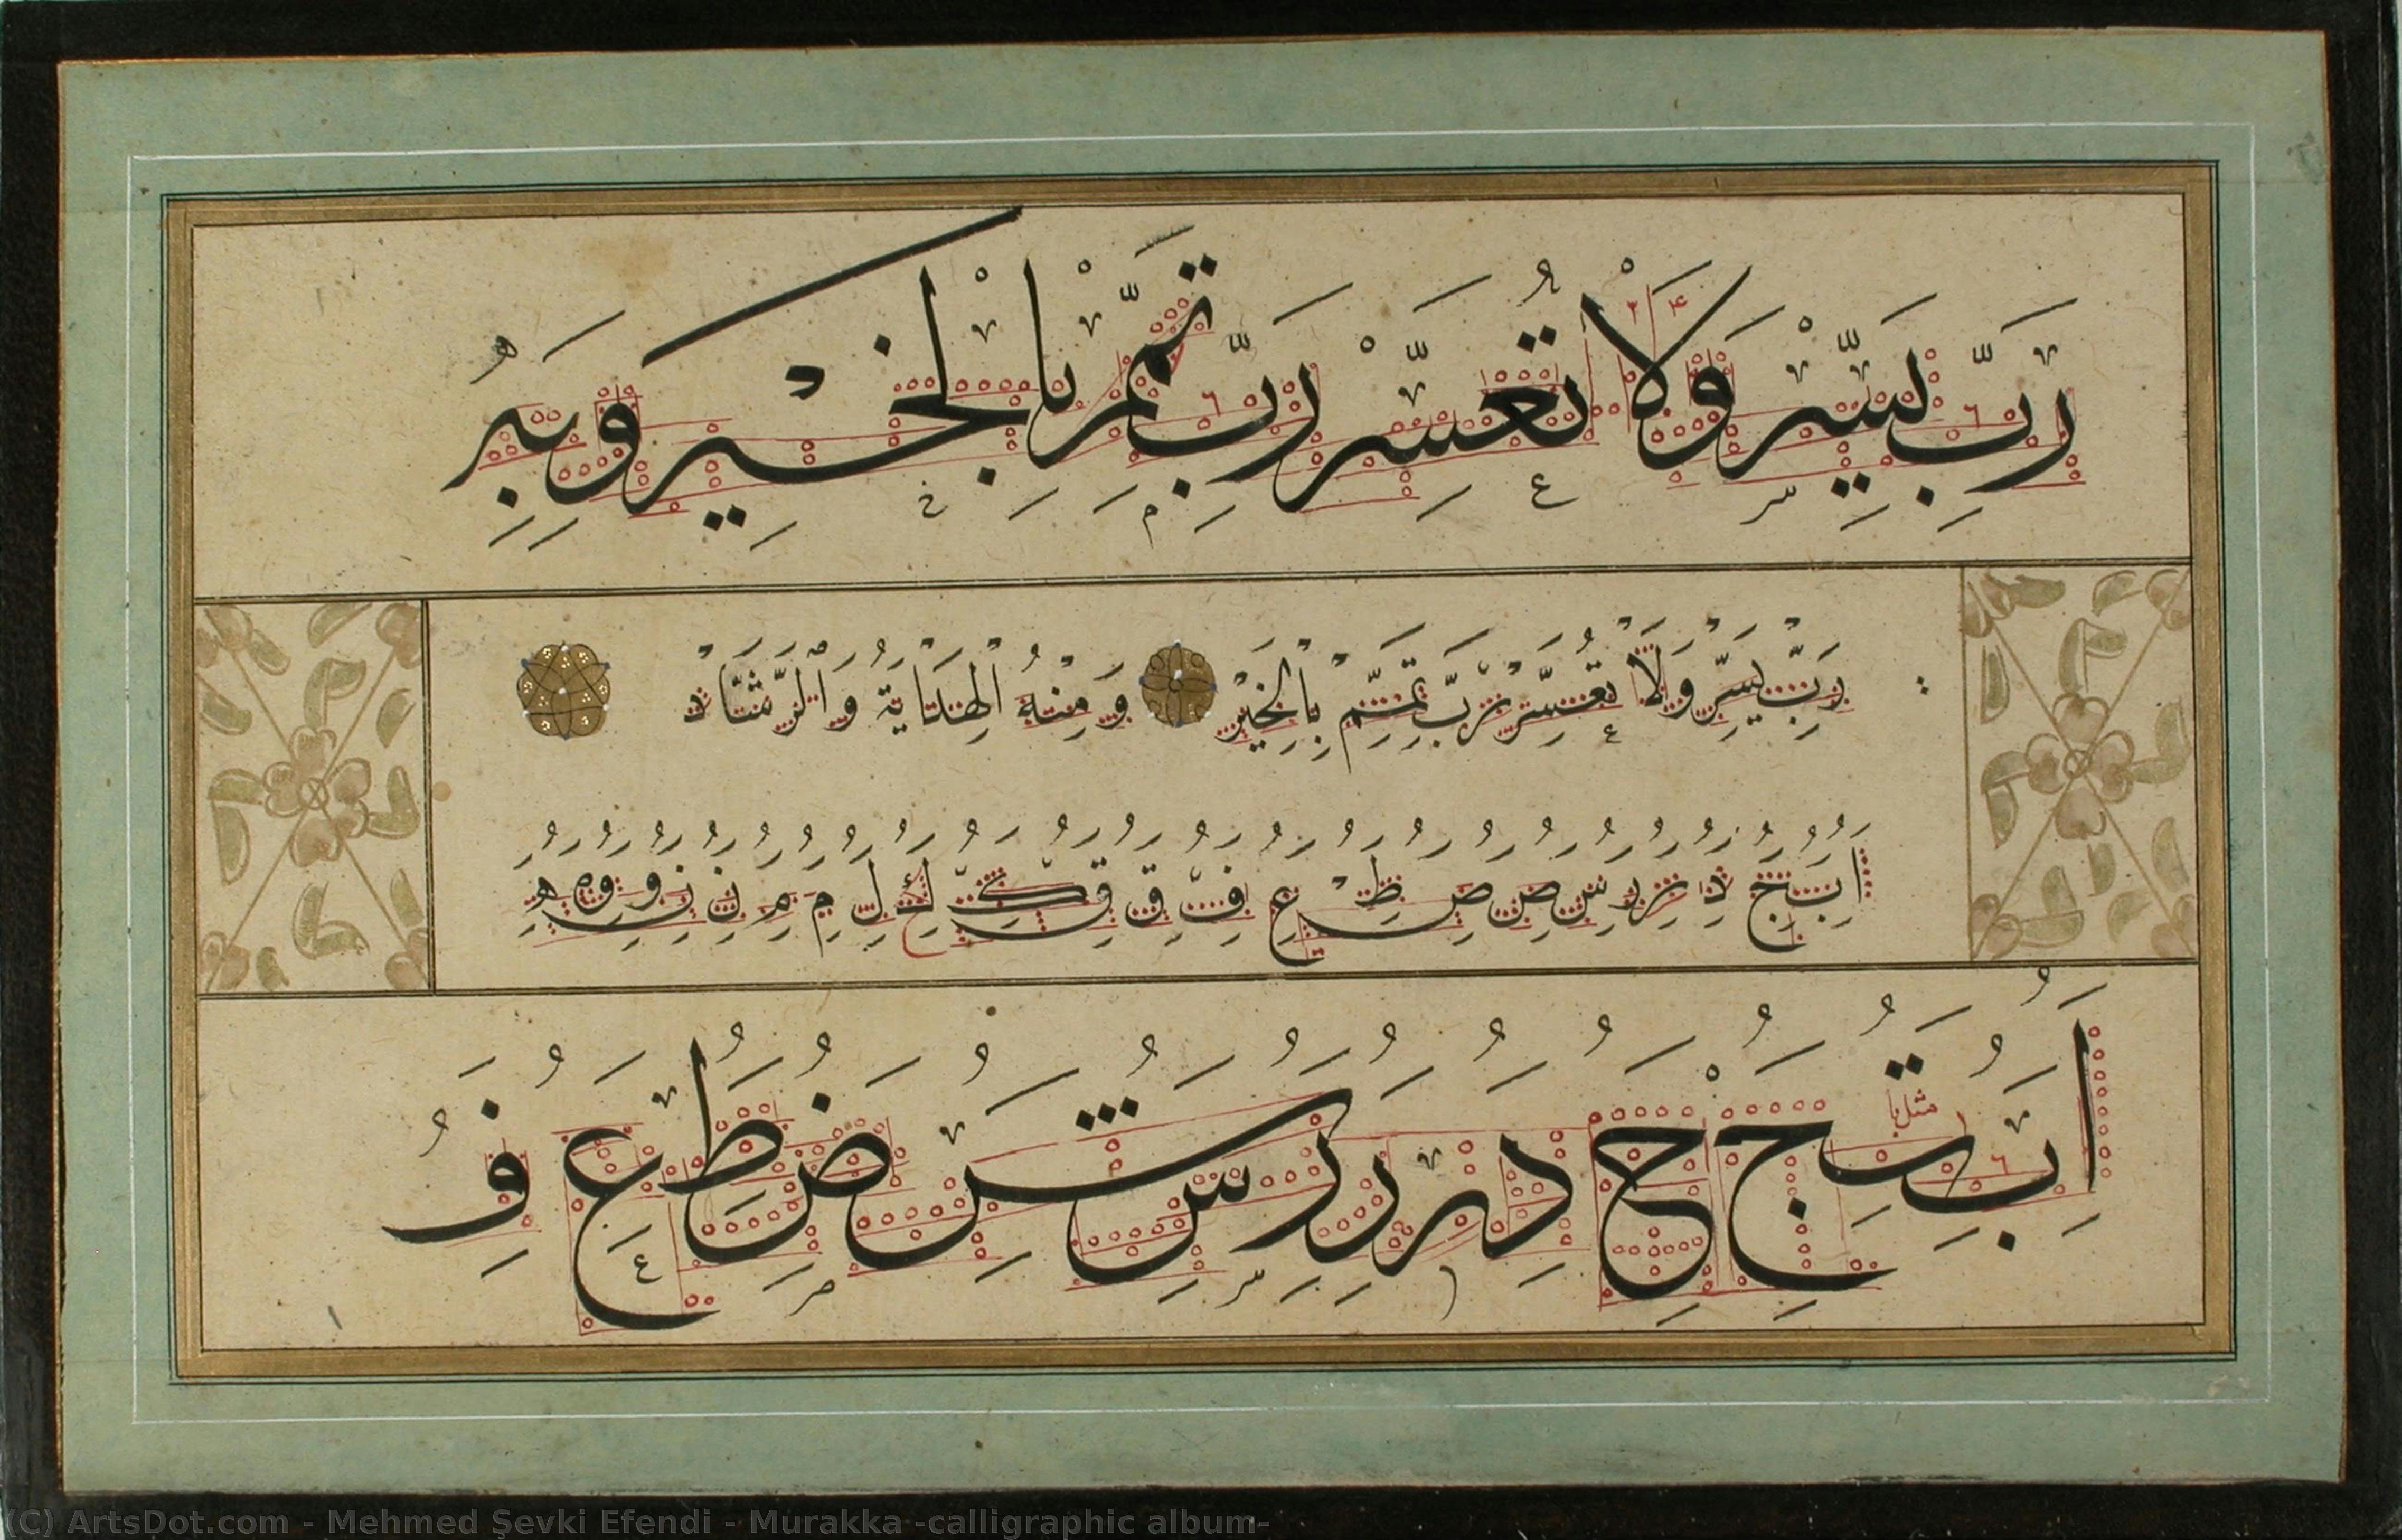 رَبِّ يَسِّرْ وَلَا تُعَسِّرْ رَبِّ تَمِّمْ بِالْخَيْرِ وَبِهِ
رَبِّ يَسِّرْ وَلَا تُعَسِّرْ رَبِّ تَمِّمْ بِالْخَيْرِ وَمِنْهُ الْهِدَايَةُ وَالرَّشَادْ
ا ب ج د ر ر س ص ص ط ع ف ق ق ك ك ل م م ن ن و و ه
مثل با
ا ب ت ج ح د ر ر ر س ش ض ط ع ف
(C) ArtsDot.com - Mehmed Şevki Efendi - Murakka -calligraphic album-